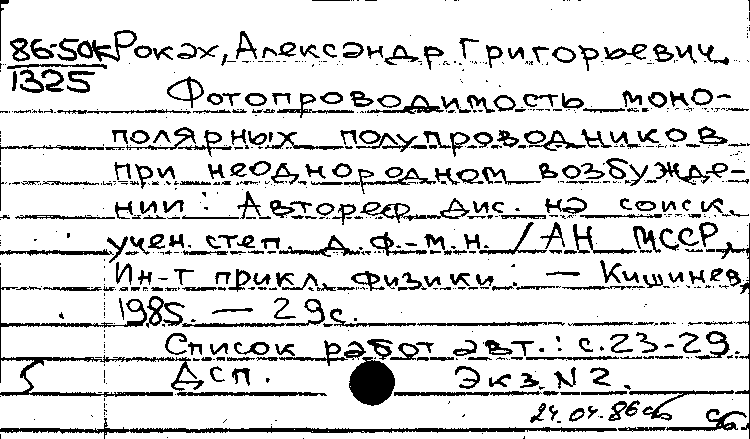 86-50К Роках, Александр Григорьевич.
1325
Фотопроводимость моно-
полярных полупроводников
при неоднородном возбужде-
нии : Автореф. дис. на соиск.
учен. степ. д.ф.-м.н. / АН МССР,
Ин-т прикл. физики. — Кишинев,
1985. — 29 с.
Список работ авт.: с. 23-29.
5 Дсп. Экз. N 2.
24.04.86